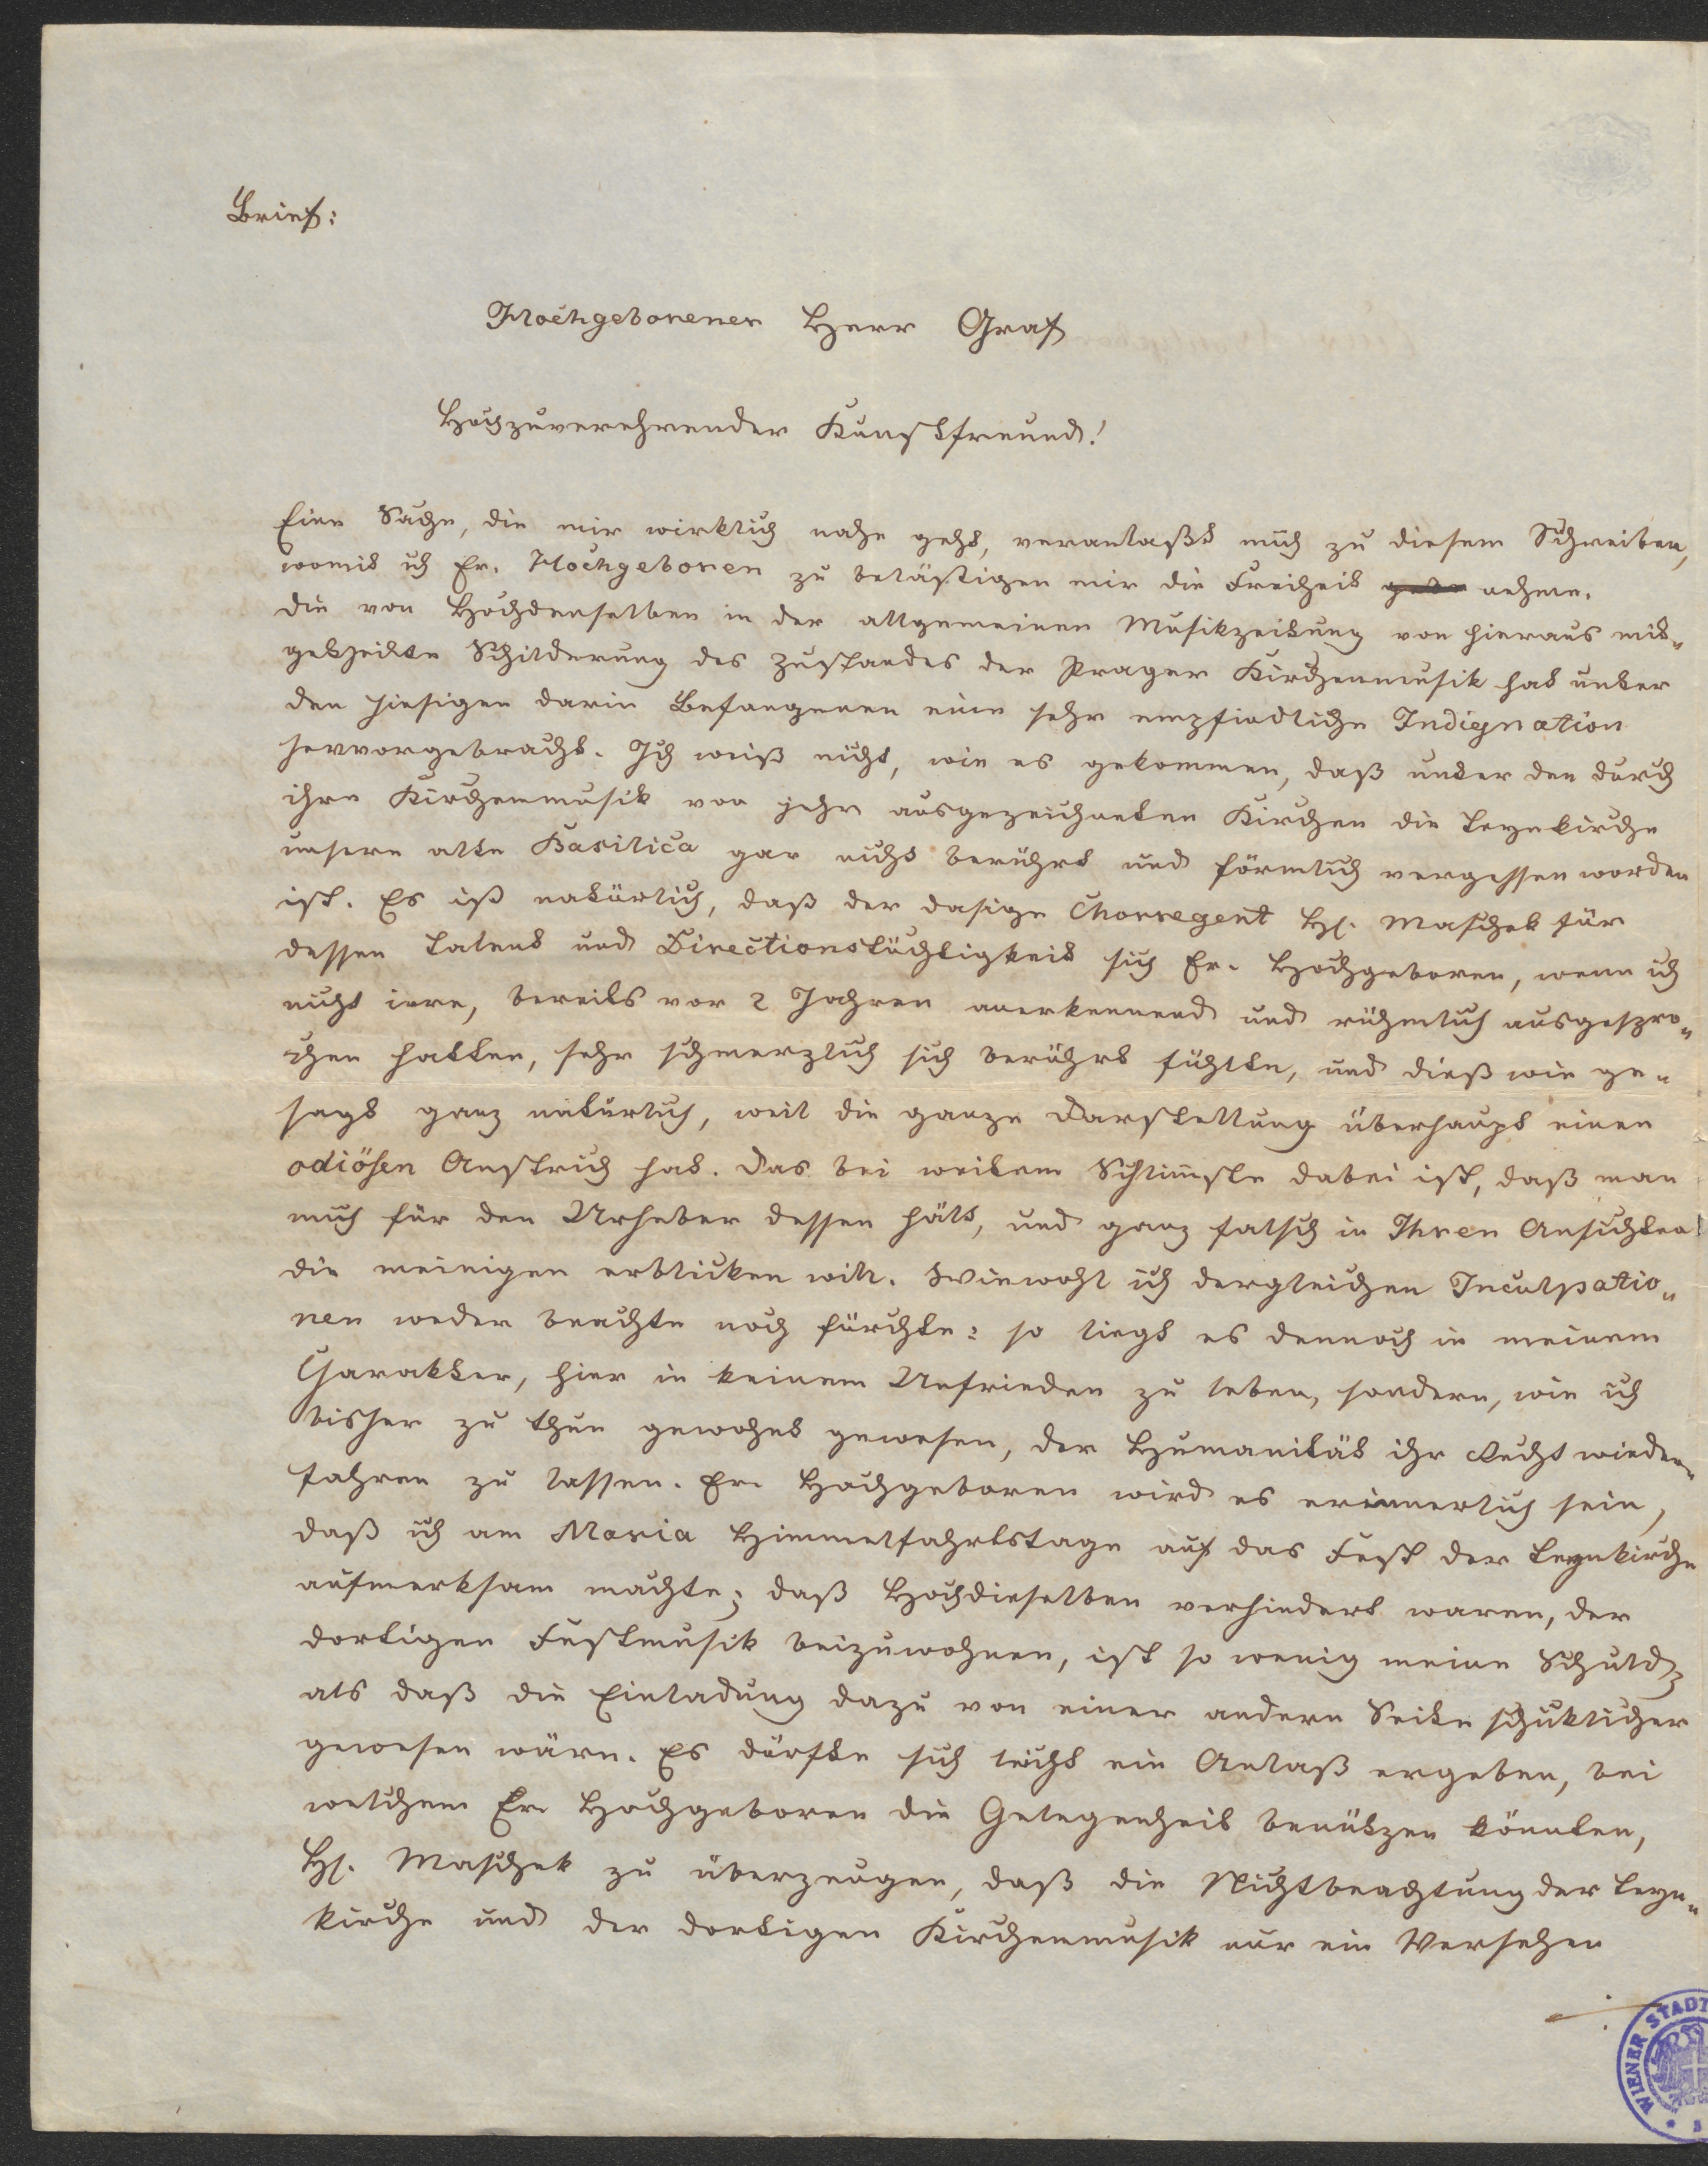 Brief:
Hochgeborener Herr Graf
Hochzuverehrender Kunstfreund!
Eine Sache, die mir wirklich nahe geht, veranlaßt mich zu diesem Schreiben,
womit ich Er. Hochgeboren zu belästigen mir die Freiheit nehme.
Die von Hochdenselben in der allgemeinen Musikzeitung von hieraus mit„
getheilte Schilderung des Zustandes der Prager Kirchenmusik hat unter
den hiesigen darin Befangenen eine sehr empfindliche Indignation
hervorgebracht. Ich weiß nicht, wie es gekommen, daß unter den durch
ihre Kirchenmusik von jehe ausgezeichneten Kirchen die Teynkirche
unsere alte Basilica gar nicht berührt und förmlich vergessen worden
ist. Es ist natürlich, daß der dasige Chorregent H. Maschek für
dessen Talent und Directionstüchtigkeit sich Er. Hochgeboren, wenn ich
nicht irre, bereits vor 2 Jahren anerkennend und rühmlich ausgespro„
chen hatten, sehr schmerzlich sich berührt fühlte, und dieß wie ge„
sagt ganz natürlich, weil die ganze Darstellung überhaupt einen
odiösen Anstrich hat. Das bei weitem Schlimste dabei ist, daß man
mich für den Urheber dessen hält, und ganz falsch in Ihren Ansichten
die meinigen erblicken will. Wiewohl ich dergleichen Inculpatio„
nen weder beachte noch fürchte: so liegt es dennoch in meinem
Charakter, hier in keinem Unfrieden zu leben, sondern, wie ich
bisher zu thun gewohnt gewesen, der Humanität ihr Recht wieder„
fahren zu lassen. Er. Hochgeboren wird es erinnerlich sein,
daß ich am Maria Himmelfahrtstage auf das Fest der Teynkirche
aufmerksam machte; daß Hochdieselben verhindert waren, der
dortigen Festmusik beizuwohnen, ist so wenig meine Schuld,
als daß die Einladung dazu von einer andern Seite schicklicher
gewesen wäre. Es dürfte sich leicht ein Anlaß ergeben, bei
welchem Er. Hochgeboren die Gelegenheit benützen könnten,
H. Maschek zu überzeugen, daß die Nichtbeachtung der Teyn„
kirche und der dortigen Kirchenmusik nur ein Versehen
WIENER STADT